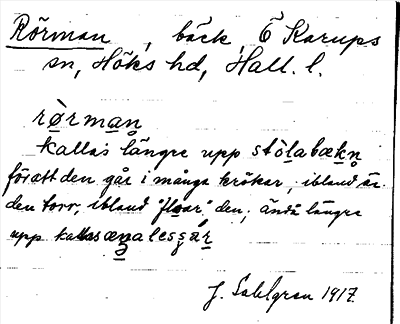 Rörman, bäck, Ö Karups
sn, Höks hd, Hall. l.
ròrman
kallas längre upp stòlabækn
förätt den går i många krökar, ibland är
den torr, ibland "floar" den; ändå längre
upp kallas
J. Sahlgren 1917.